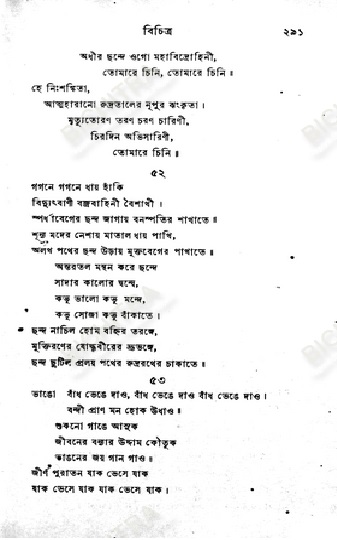 বিচিত্র ২৯১
অধীর ছন্দে ওগো মহাবিদ্রোহিনী,
তোমারে চিনি, তোমারে চিনি॥
হে নিঃশঙ্কিতা,
আত্মহারানো রুদ্রতালের নূপুর ঝংকৃতা।
মৃত্যুতোরণ তরণ চরণ চারিণী,
চিরদিন অভিসারিণী,
তোমারে চিনি॥
৫২
গগনে গগনে ধায় হাঁকি
বিদ্যুৎবাণী বজ্রবাহিনী বৈশাখী।
স্পর্ধাবেগের ছন্দ জাগায় বনস্পতির শাখাতে॥
শূন্য মদের নেশায় মাতাল ধায় পাখি,
অলখ পথের ছন্দ উড়ায় মুক্তবেগের পাখাতে॥
অন্তরতল মন্থন করে ছন্দে
সাদার কালোর দ্বন্দ্বে,
কভু ভালো কভু মন্দে,
কভু সোজা কভু বাঁকাতে।
ছন্দ নাচিল হোম বহ্নির তরঙ্গে,
মুক্তিরণের যোদ্ধৃবীরের ভ্রূভঙ্গে,
ছন্দ ছুটিল প্রলয় পথের রুদ্ররথের চাকাতে॥
৫৩
ভাঙো বাঁধ ভেঙে দাও, বাঁধ ভেঙে দাও বাঁধ ভেঙে দাও।
বন্দী প্রাণ মন হোক উধাও॥
শুকনো গাঙে আসুক
জীবনের বন্যার উদ্দাম কৌতুক
ভাঙনের জয় গান গাও॥
জীর্ণ পুরাতন যাক ভেসে যাক
যাক ভেসে যাক যাক ভেসে যাক।